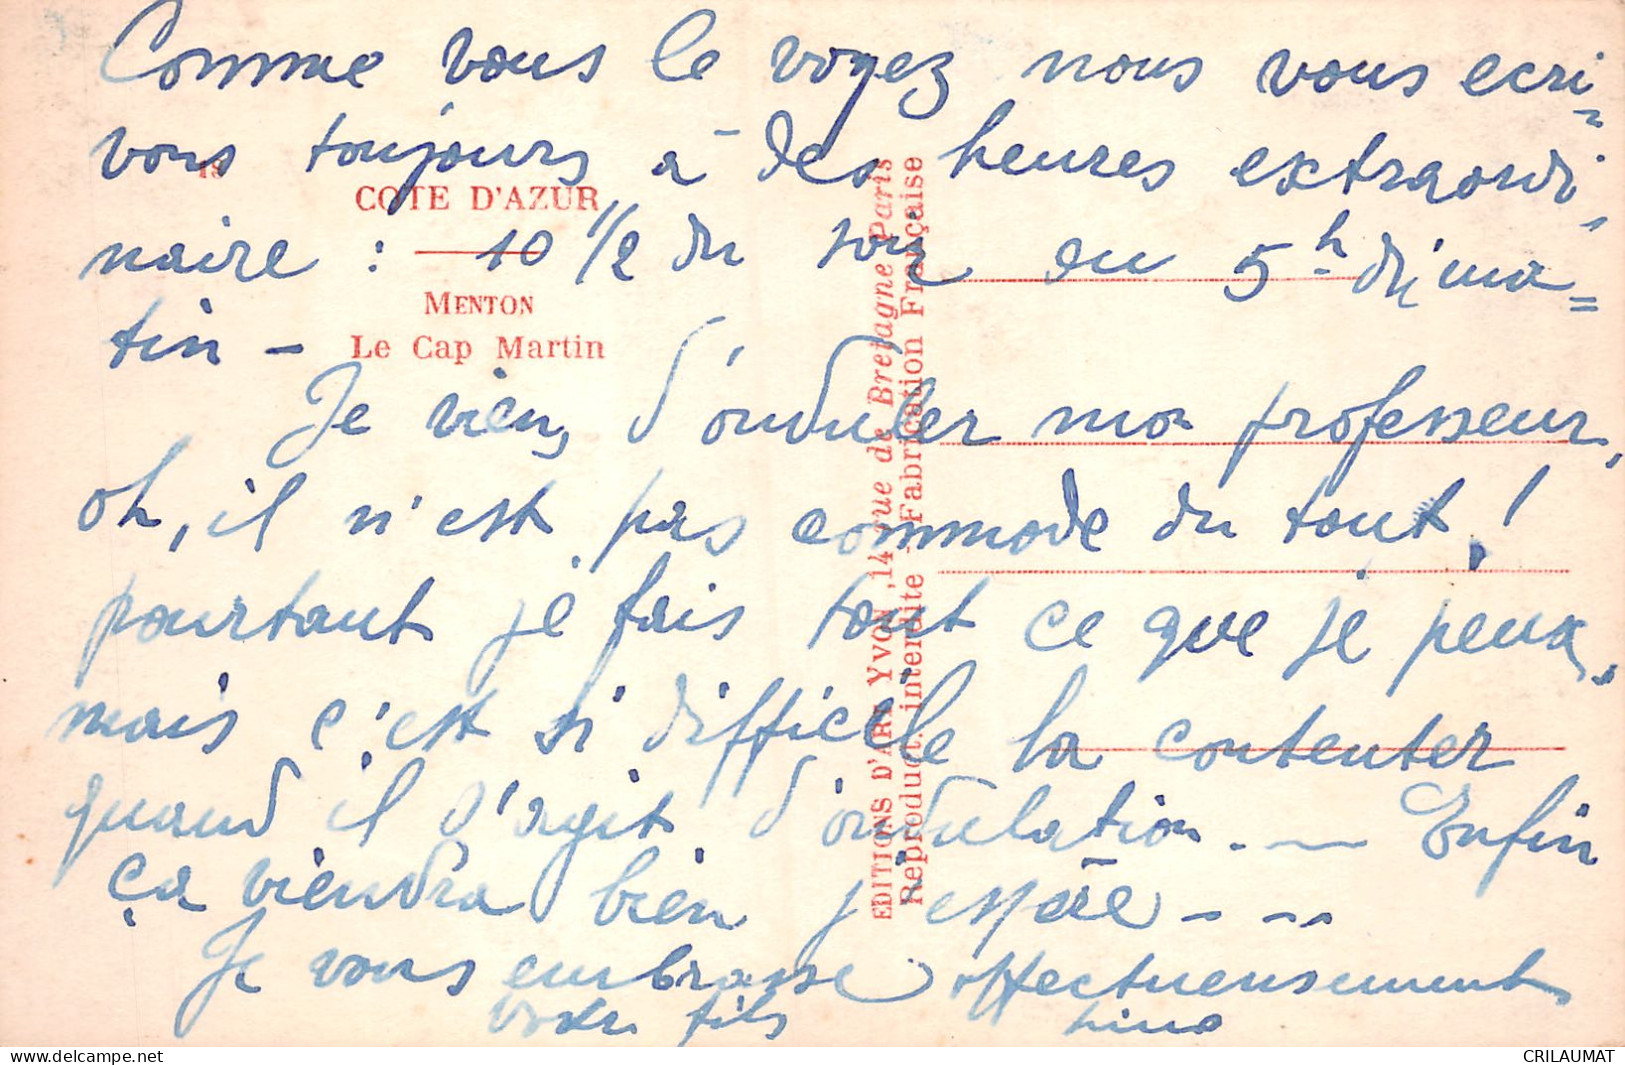 Comme vous le voyez nous vous ecri=
vons toujours à des heures extraordi
naire : 10 1/2 du soir ou 5h du ma=
tin –
Je viens d'onduler mon professeur,
oh, il n'est pas commode du tout !
pourtant je fais tout ce que je peux,
mais c'est si difficile la contenter
quand il s'agit d'ondulation. — Enfin
ça viendra bien j'espère - - -
Je vous embrasse affectueusement
votre fils
19
COTE D'AZUR
MENTON
Le Cap Martin
EDITIONS D'ART YVON, 14 rue de Bretagne Paris
Reproduct. interdite - Fabrication Française
CRILAUMAT